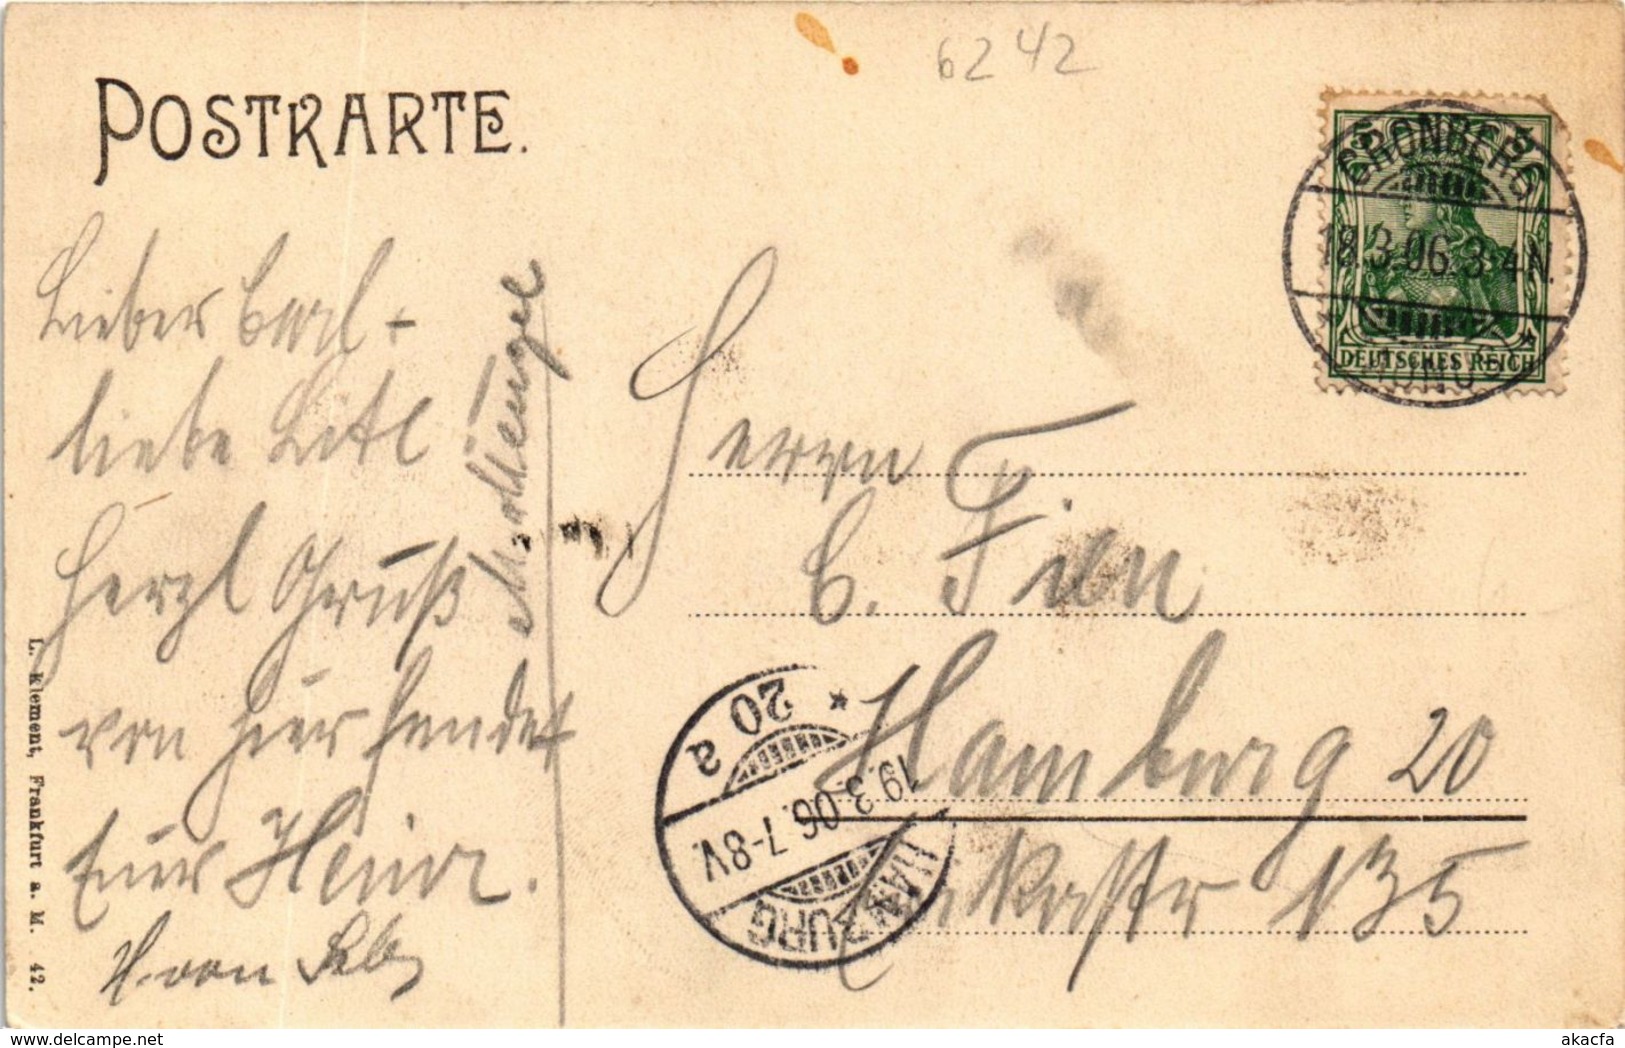 6242
POSTKARTE.
CRONBERG
18.3.06.3-4N.
DEUTSCHES REICH
Lieber Carl +
liebe
Herzl Gruß
von hier sendet
Euer Heinr.
H. von
Herrn
C. Fien
Hamburg 20
135
HAMBURG
19.3.06.7-8V.
* 20a
L. Klement, Frankfurt a. M. 42.
akacfa
www.delcampe.net